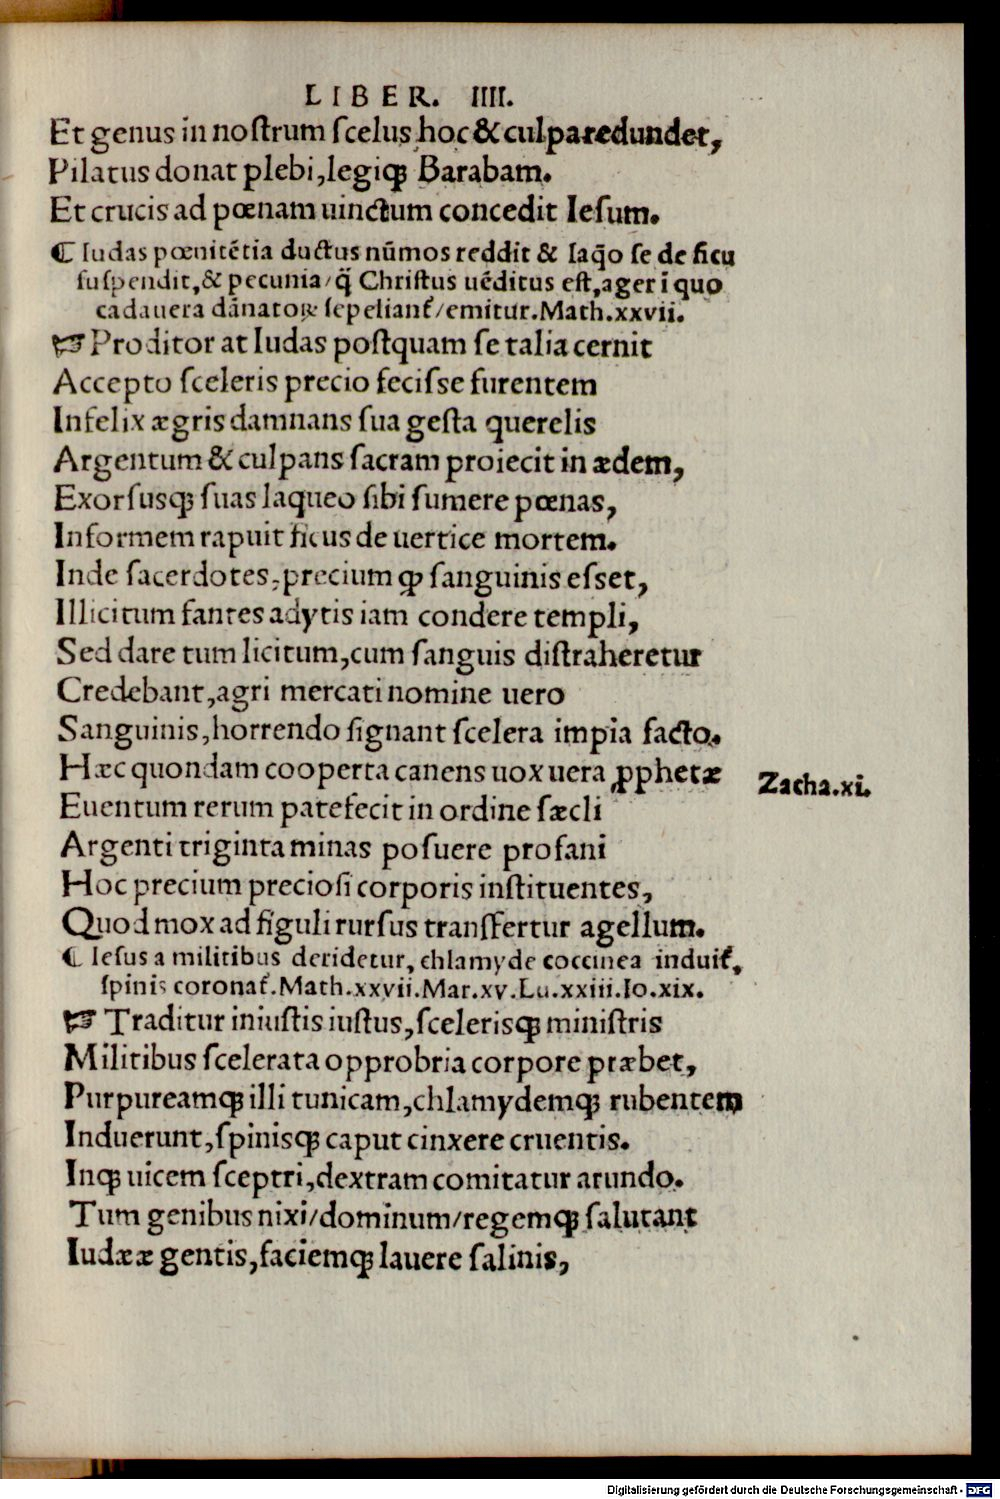 LIBER. IIII.
Et genus in nostrum scelus hoc & culpa redundet,
Pilatus donat plebi, legiqꝫ Barabam.
Et crucis ad pœnam uinctum concedit Iesum.
¶ Iudas pœnitẽtia ductus nũmos reddit & laq̃o se de ficu
suspendit, & pecunia/ q̃ Christus uẽditus est, ager ĩ quo
cadauera dãnatoꝝ sepeliant᷑/ emitur. Math. xxvii.
☞ Proditor at Iudas postquam se talia cernit
Accepto sceleris precio fecisse furentem
Infelix ægris damnans sua gesta querelis
Argentum & culpans sacram proiecit in ædem,
Exorsusqꝫ suas laqueo sibi sumere pœnas,
Informem rapuit ficus de uertice mortem.
Inde sacerdotes, precium ꝙ sanguinis esset,
Illicitum fantes adytis iam condere templi,
Sed dare tum licitum, cum sanguis distraheretur
Credebant, agri mercati nomine uero
Sanguinis, horrendo signant scelera impia facto.
Hæc quondam cooperta canens uox uera ꝓphetæ
Zacha. xi.
Euentum rerum patefecit in ordine sæcli
Argenti triginta minas posuere profani
Hoc precium preciosi corporis instituentes,
Quod mox ad figuli rursus transfertur agellum.
¶ Iesus a militibus deridetur, chlamyde coccinea induit᷑,
spinis coronat᷑. Math. xxvii. Mar. xv. Lu. xxiii. Io. xix.
☞ Traditur iniustis iustus, scelerisqꝫ ministris
Militibus scelerata opprobria corpore præbet,
Purpureamqꝫ illi tunicam, chlamydemqꝫ rubentem
Induerunt, spinisqꝫ caput cinxere cruentis.
Inqꝫ uicem sceptri, dextram comitatur arundo.
Tum genibus nixi/ dominum/ regemqꝫ salutant
Iudææ gentis, faciemqꝫ lauere salinis,
Digitalisierung gefördert durch die Deutsche Forschungsgemeinschaft - DFG